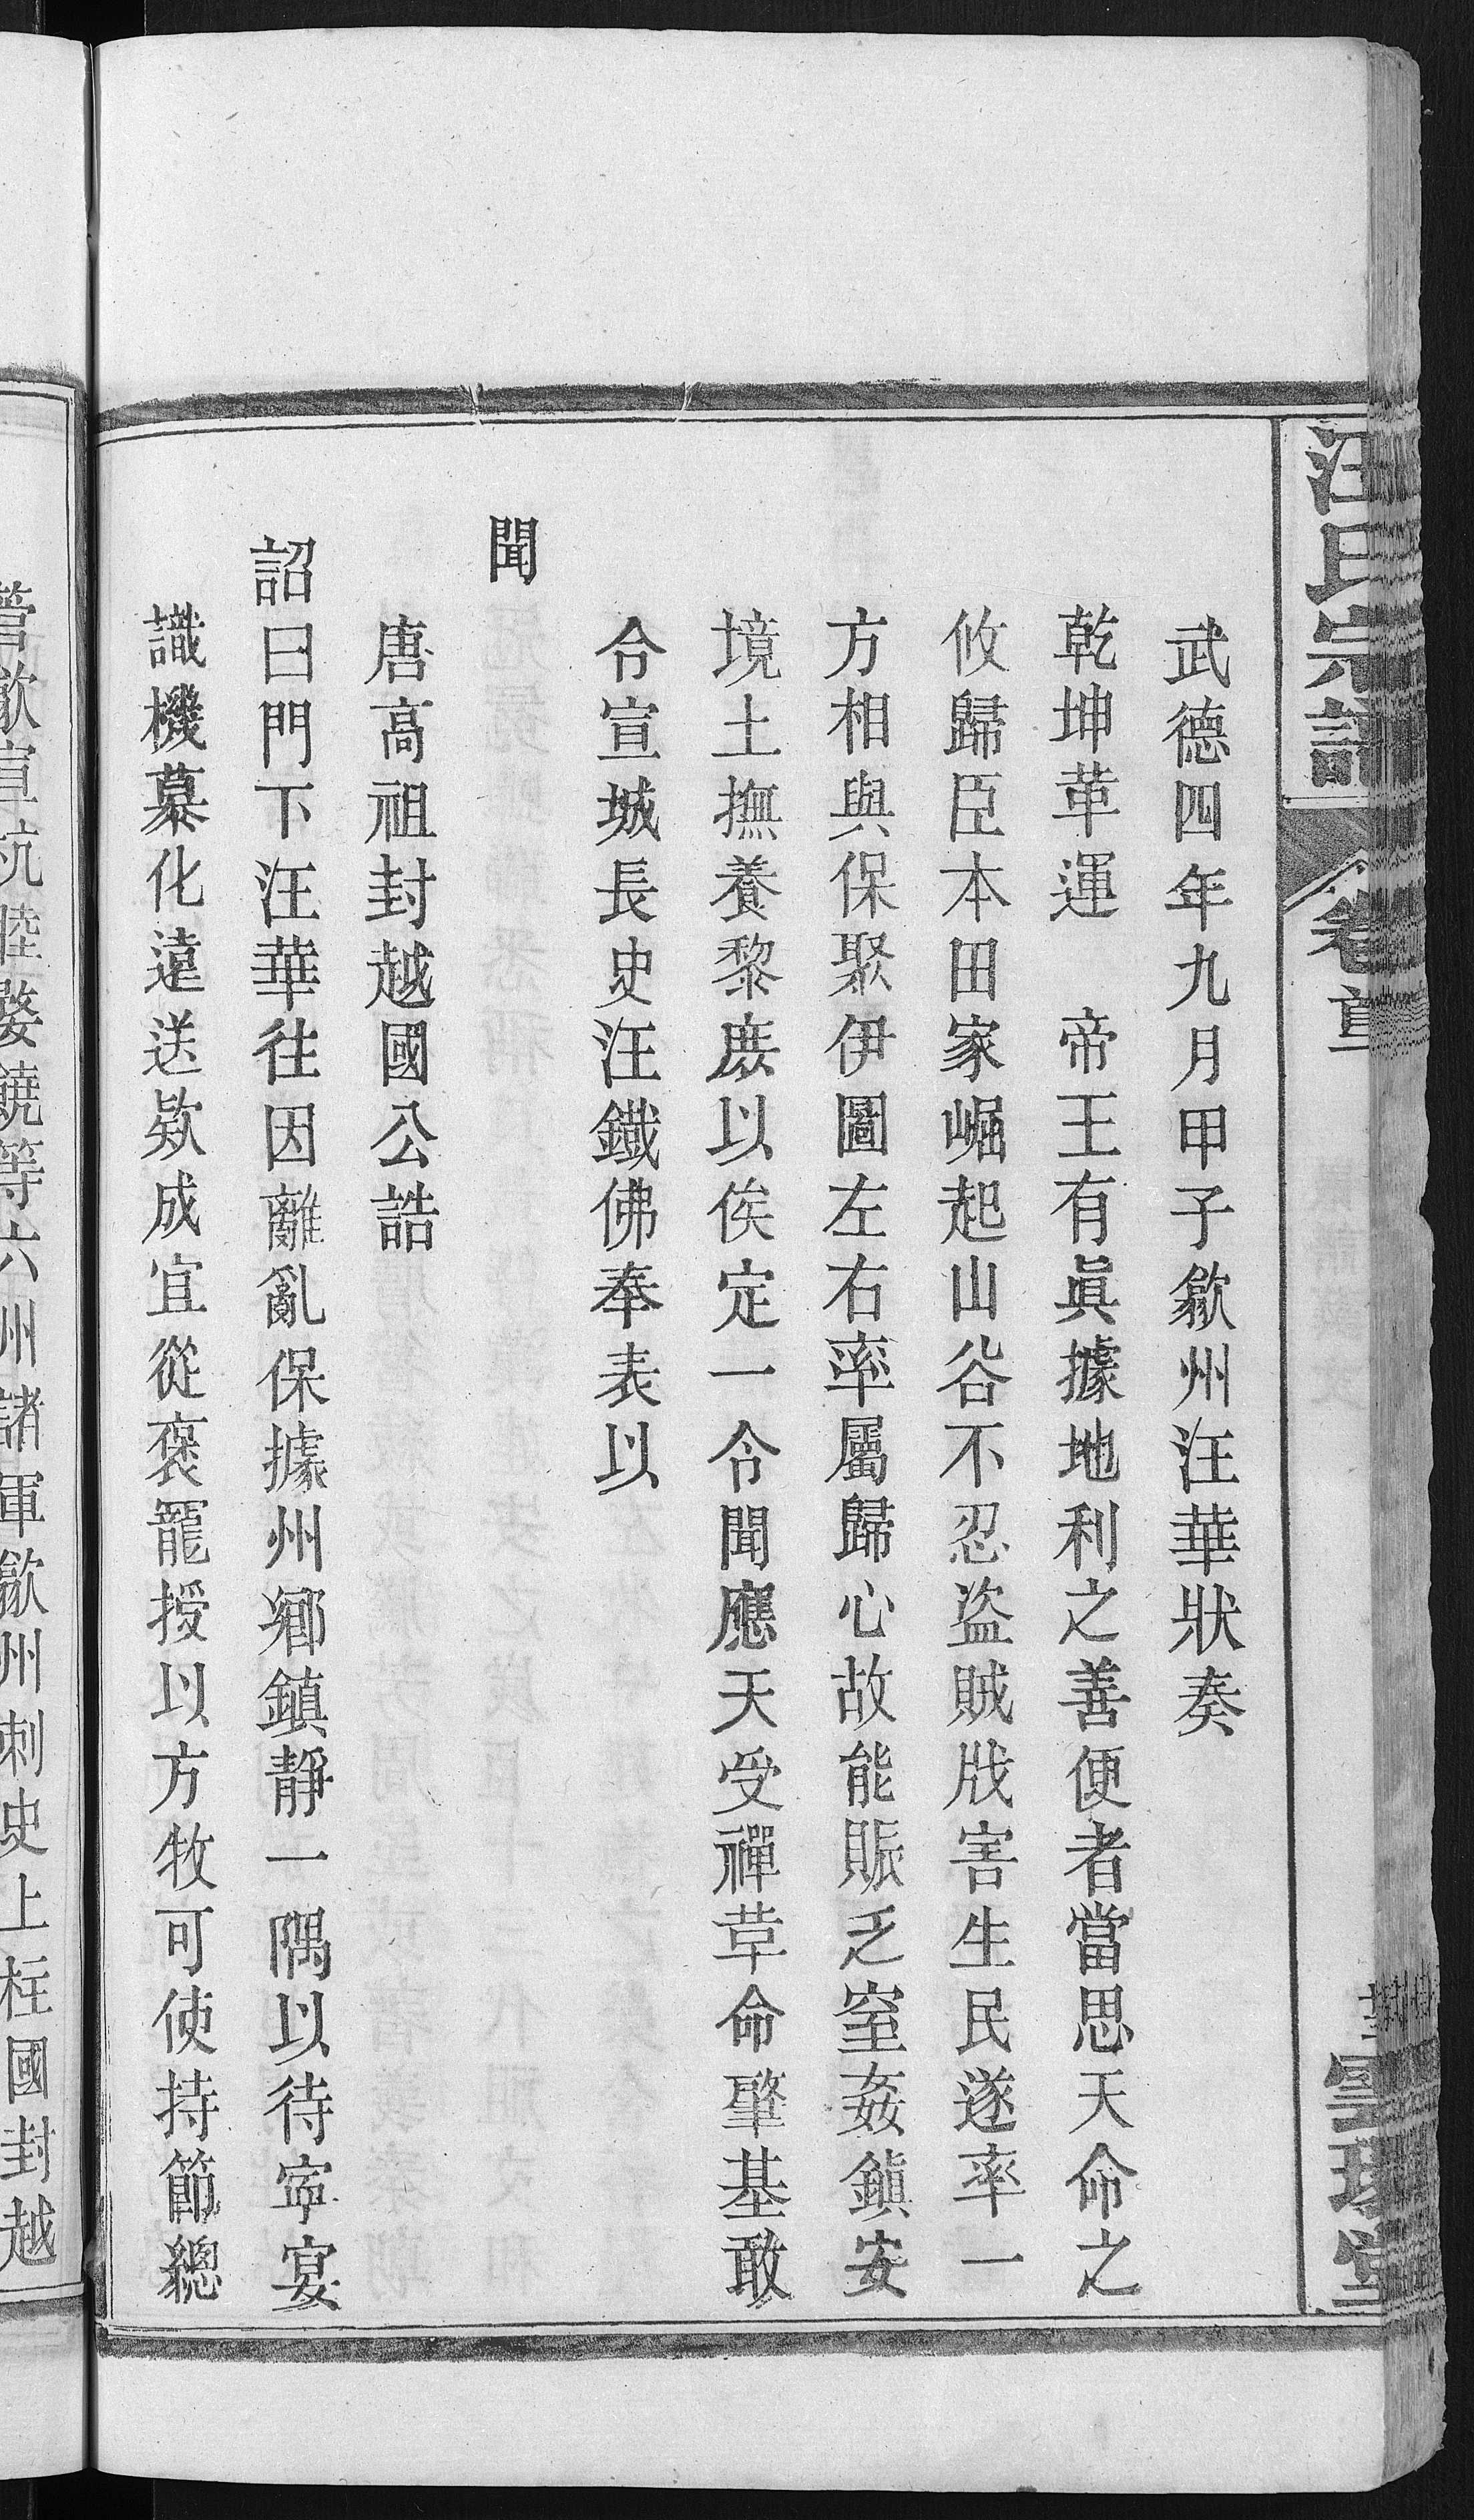 汪氏宗譜
卷首
武德四年九月甲子歙州汪華狀奏
乾坤革運　帝王有眞據地利之善便者當思天命之
攸歸臣本田家崛起山谷不忍盜賊戕害生民遂率一
方相與保聚伊圖左右率屬歸心故能賑乏窒姦鎮安
境土撫養黎庶以俟定一令聞應天受禪草命肇基敢
令宣城長史汪鐵佛奉表以
聞
唐高祖封越國公誥
詔曰門下汪華往因離亂保據州鄉鎮靜一隅以待寜宴
識機慕化遠送欵成宜從褒寵授以方牧可使持節總
管歙宣杭睦婺饒等六州諸軍歙州刺史上柱國封越